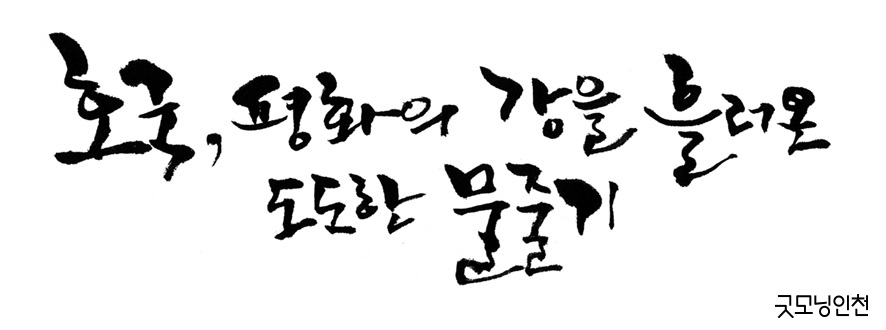 호국, 평화의 강을 흘러온
도도한 물줄기
굿모닝인천